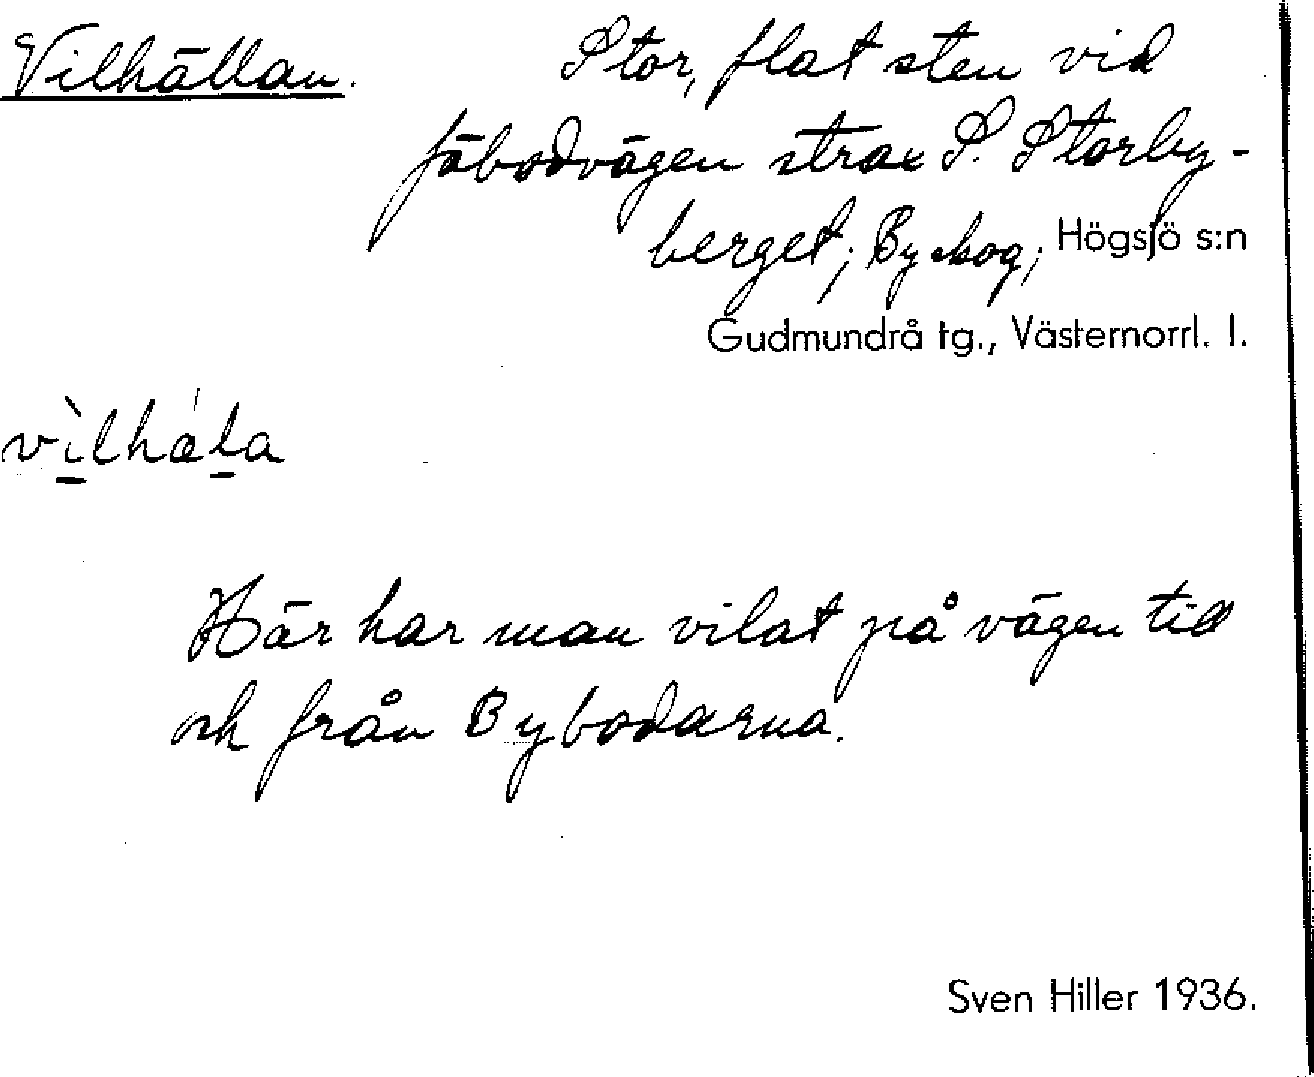 Vilhällan. Stor, flat sten vid
fäbodvägen strax S. Storby-
berget; Byskog; Högsjö s:n
Gudmundrå tg., Västernorrl. l.
vìlhǽla
Här har man vilat på vägen till
och från Bybodarna.
Sven Hiller 1936.